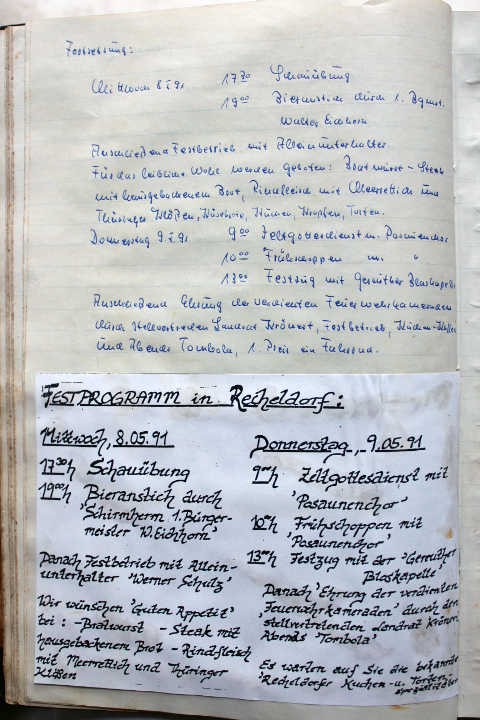 Fortsetzung:
Mittwoch 8.5.91 17 30 Schauübung
19 00 Bieranstich durch 1. Bgmst.
Walter Eichhorn
Anschließend Festbetrieb mit Alleinunterhalter.
Für das leibliche Wohl werden geboten: Bratwürst - Steak
mit hausgebackenem Brot, Rindfleisch mit Meerrettich und
Thüringer Klößen, Käsebrote, Kuchen, Krapfen, Torten.
Donnerstag 9.5.91 9 00 Zeltgottesdienst m. Posaunenchor
10 00 Frühschoppen m. "
13 00 Festzug mit Gereuther Blaskapelle
Anschließend Ehrung der verdienten Feuerwehrkameraden
durch stellvertretenden Landrat Kröner, Festbetrieb,
und Abends Tombola, 1. Preis ein Fahrrad.
FESTPROGRAMM in Recheldorf:
Mittwoch, 8.05.91
17 30 h Schauübung
19 00 h Bieranstich durch
'Schirmherrn 1. Bürger-
meister W. Eichhorn'
Danach Festbetrieb mit Allein-
unterhalter 'Werner Schulz'
Wir wünschen 'Guten Appetit'
bei : - Bratwurst - Steak mit
hausgebackenem Brot - Rindfleisch
mit Meerrettich und Thüringer
Klößen
Donnerstag, 9.05.91
9 00 h Zeltgottesdienst mit
'Posaunenchor'
10 00 h Frühschoppen mit
'Posaunenchor'
13 00 h Festzug mit der 'Gereuther
Blaskapelle'
Danach 'Ehrung der verdienten
'Feuerwehrkameraden' durch den
stellvertretenden Landrat Kröner
Abends 'Tombola'
Es warten auf Sie die bekannte
'Recheldorfer Kuchen - u. Torten-
spezialitäten